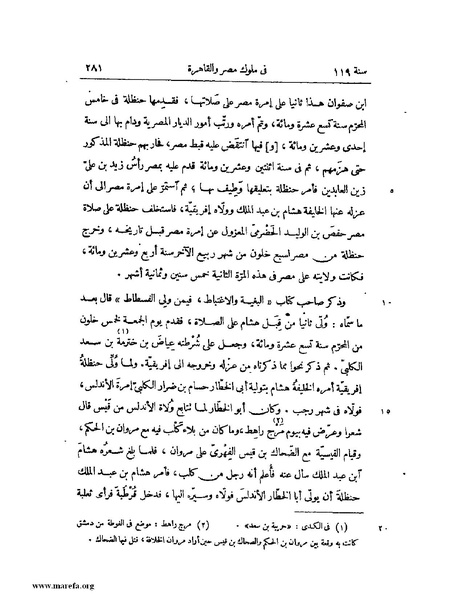 سنة ١١٩ فى ملوك مصر والقاهرة ٢٨١
ابن صفوان هذا ثانيا على إمرة مصر على صلاتها، فقدمها حنظلة فى خامس
المحرّم سنة تسع عشرة ومائة، وتمّ أمره ورتّب أمور الديار المصرية ودام بها الى سنة
إحدى وعشرين ومائة، [و] فيها آنتقض عليه قبط مصر، فحاربهم حنظلة المذكور
حتى هزمهم، ثم فى سنة اثنتين وعشرين ومائة قدم عليه بمصر رأسُ زيد بن علىّ
زين العابدين فأمر حنظلة بتعليقها وطِيف بها؛ ثم آستمرّ على إمرة مصر الى أن ٥
عزله عنها الخليفة هشام بن عبد الملك وولّاه إفريقيّة، فاستخلف حنظلة على صلاة
مصر حفصَ بن الوليد الحَضْرمىّ المعزول عن إمرة مصر قبل تاريخه، وخرج
حنظلة من مصر لسبع خلون من شهر ربيع الآخر سنة أربع وعشرين ومائة،
فكانت ولايته على مصر فى هذه المرّة الثانية خمس سنين وثمانية أشهر.
وذكر صاحب كتاب «البغية والاغتباط، فيمن ولى الفسطاط» قال بعد ١٠
ما سمّاه: وُلّى ثانيا من قِبَل هشام على الصلاة، فقدم يوم الجمعة لخمس خلون
من المحرّم سنة تسع عشرة ومائة، وجعل على شُرْطته عِياض بن خترمة (١) بن سعد
الكلبىّ. ثم ذكر نحوا مما ذكرناه من عزله وخروجه الى إفريقيّة. ولما وُلّى حنظلةُ
إفريقية أمره الخليفةُ هشام بتولية أبى الخطّار حسام بن ضِرار الكلبىّ إمرةَ الأندلس،
فولّاه فى شهر رجب. وكان أبو الخطّار لما تتابع وُلاة الأندلس من قَيْس قال ١٥
شعرا وعرّض فيه بيوم مَرْج راهط (٢)، وما كان من بلاء كلب فيه مع مروان بن الحكم،
وقيام القيسية مع الضحّاك بن قيس الفِهْرىّ على مروان، فلما بلغ شعرُه هشام
آبن عبد الملك سأل عنه فأُعلم أنه رجل من كلب، فأمر هشام بن عبد الملك
حنظلة أن يولّى أبا الخطّار الأندلس فولّاه وسيّره اليها، فدخل قُرْطُبة فرأى ثعلبة
(١) فى الكندى: «حريبة بن سعد». (٢) مرج راهط: موضع فى الغوطة من دمشق ٢٠
كانت به وقعة بين مروان بن الحكم والضحاك بن قيس حين أراد مروان الخلافة، قتل فيها الضحاك.
www.marefa.org